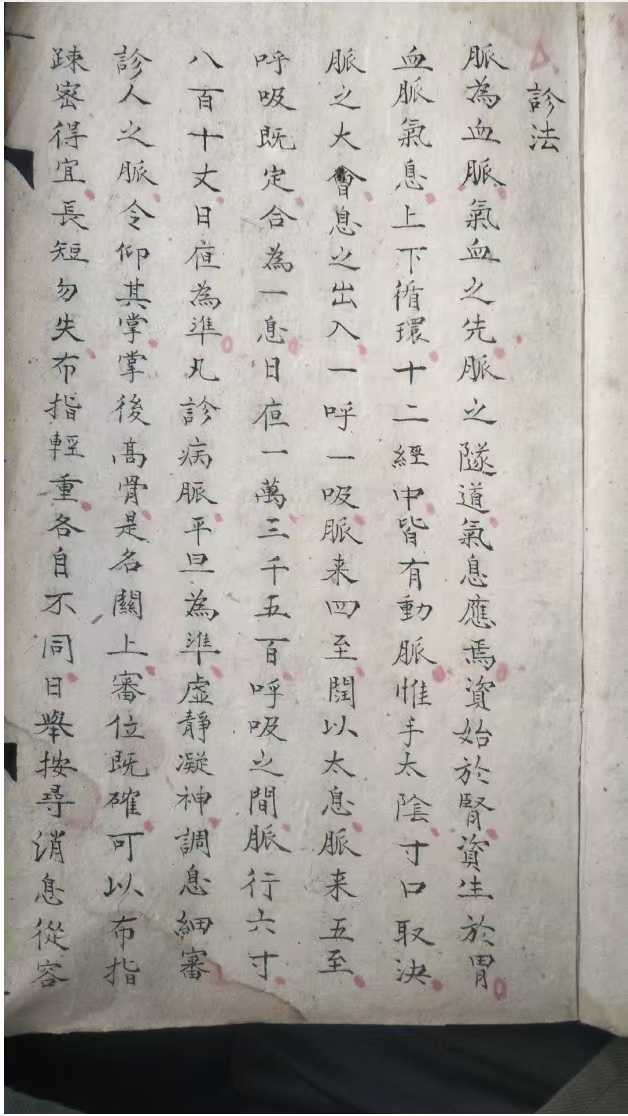 診法
脈為血脈氣血之先脈之隧道氣息應焉資始於腎資生於胃
血脈氣息上下循環十二經中皆有動脈惟手太陰寸口取決
脈之大會息之出入一呼一吸脈来四至閏以太息脈来五至
呼吸既定合為一息日夜一萬三千五百呼吸之間脈行六寸
八百十丈日夜為準凡診病脈平旦為準虛靜凝神調息細審
診人之脈令仰其掌掌後高骨是名關上審位既確可以布指
踈密得宜長短勿失布指輕重各自不同曰舉按尋消息從容